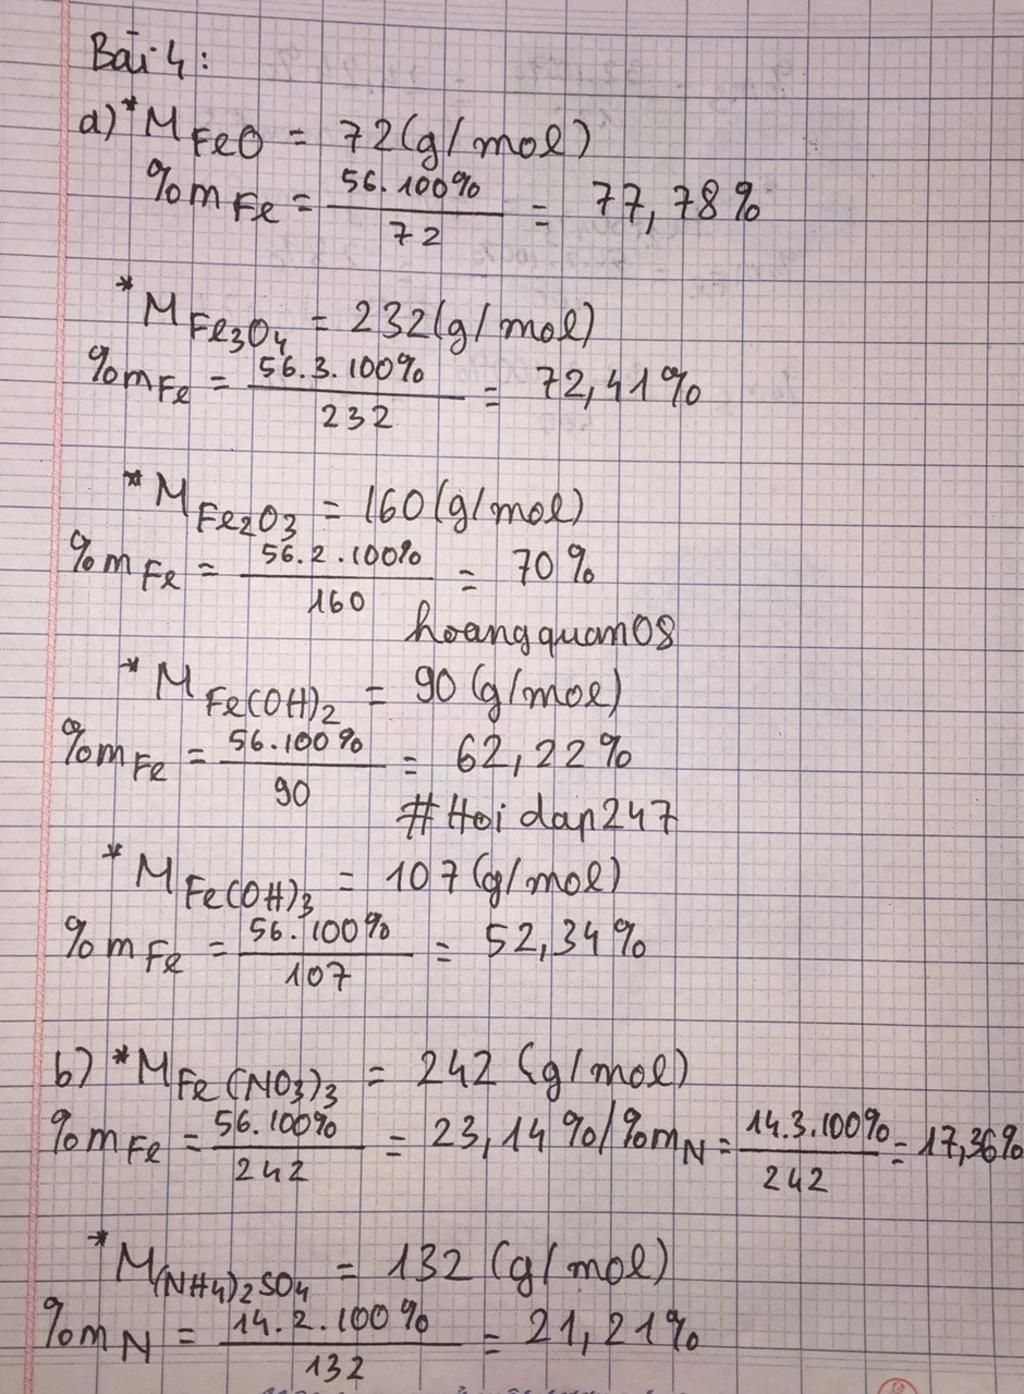 Bài 4:
a) *M FeO = 72 (g/mol)
%m Fe = 56.100% / 72 = 77,78%
*M Fe3O4 = 232 (g/mol)
%m Fe = 56.3.100% / 232 = 72,41%
*M Fe2O3 = 160 (g/mol)
%m Fe = 56.2.100% / 160 = 70%
hoangquan08
*M Fe(OH)2 = 90 (g/mol)
%m Fe = 56.100% / 90 = 62,22%
#Hoidap247
*M Fe(OH)3 = 107 (g/mol)
%m Fe = 56.100% / 107 = 52,34%
b) *M Fe(NO3)3 = 242 (g/mol)
%m Fe = 56.100% / 242 = 23,14% / %m N = 14.3.100% / 242 = 17,36%
*M (NH4)2SO4 = 132 (g/mol)
%m N = 14.2.100% / 132 = 21,21%